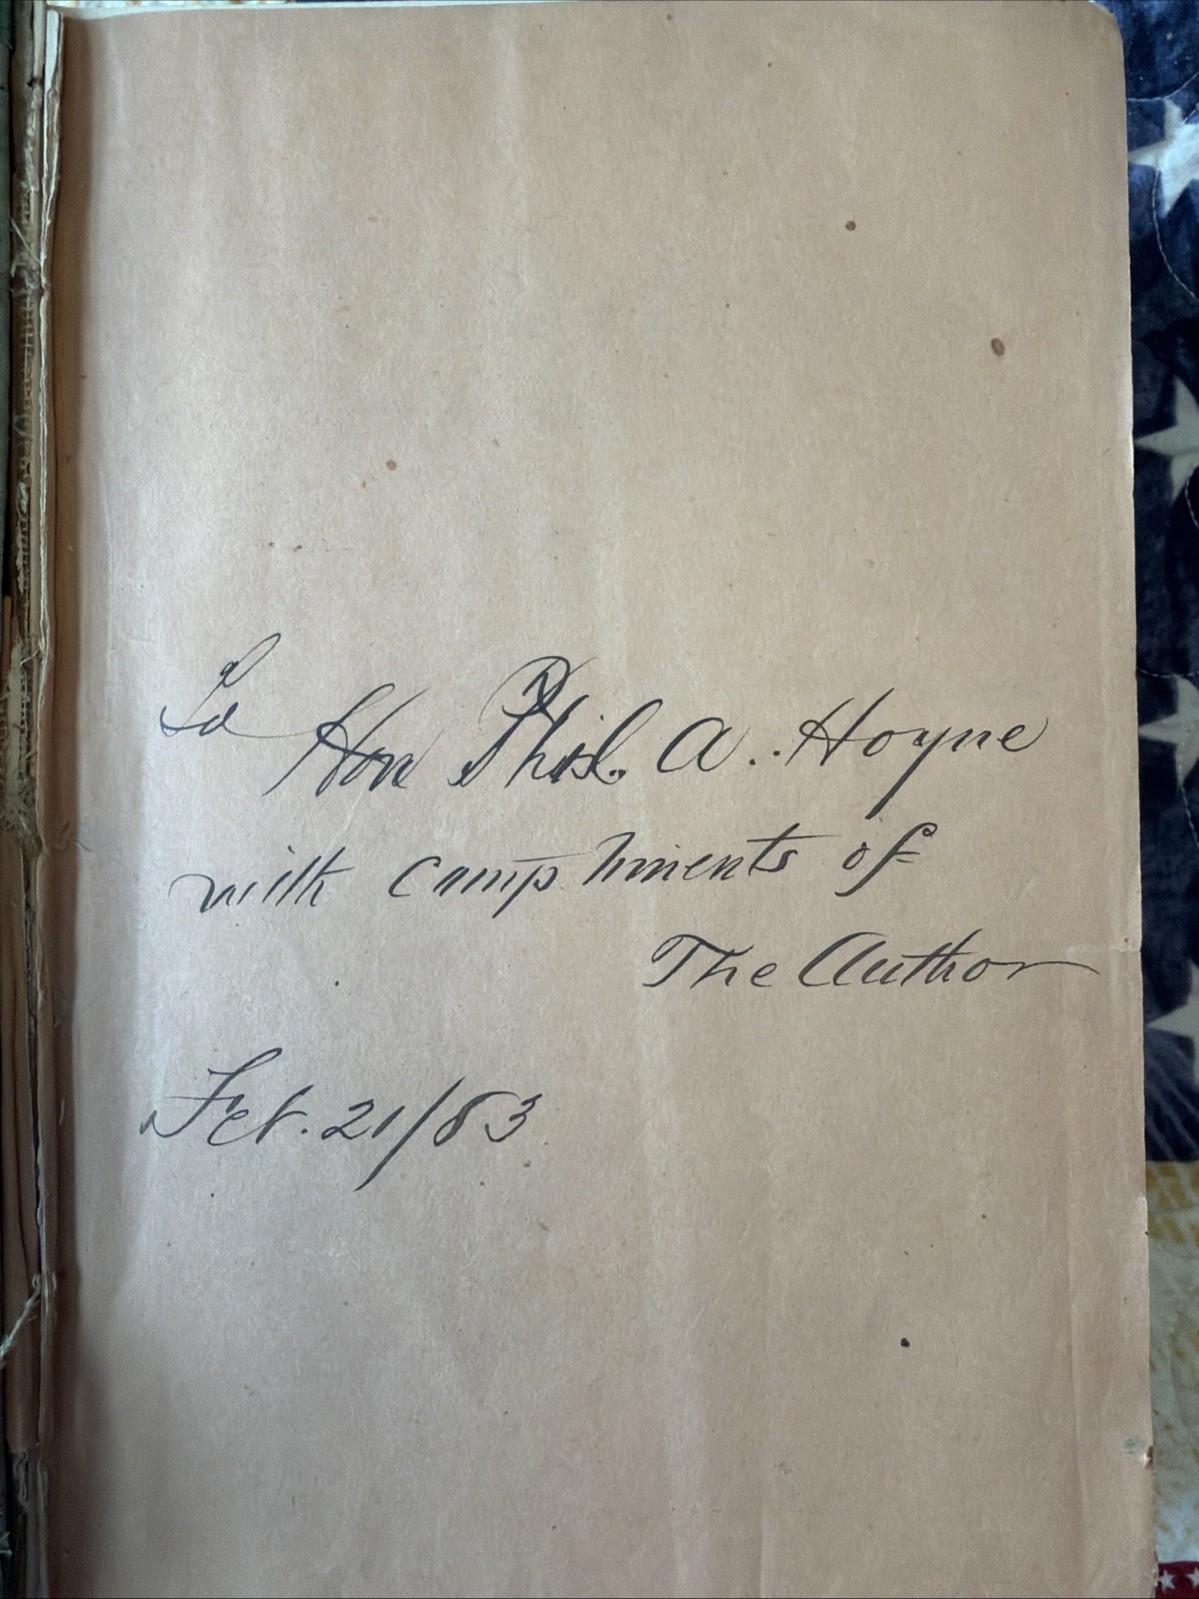 To Hon Phil. A. Hoyne
with compliments of
The Author
Feb. 21/83